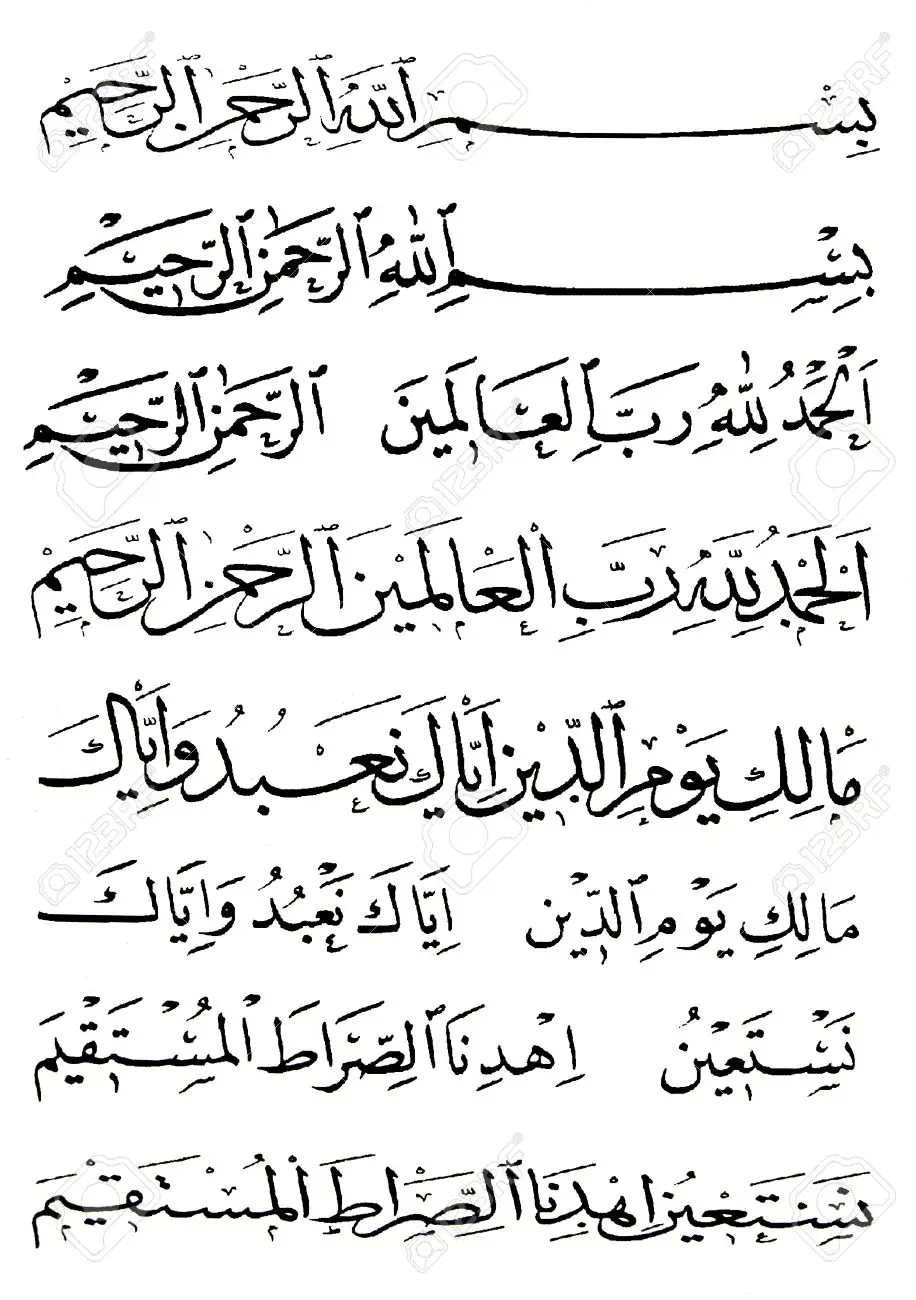 بِسْمِ ٱللَّهِ ٱلرَّحْمٰنِ ٱلرَّحِيمِ
بِسْمِ ٱللّٰهِ ٱلرَّحْمٰنِ ٱلرَّحِيْمِ
اَلْحَمْدُ لِلّٰهِ رَبِّ ٱلعَالَمِينَ ٱلرَّحْمٰنِ ٱلرَّحِيْمِ
اَلْحَمْدُ لِلّٰهِ رَبِّ الْعَالَمِيْنَ ٱلرَّحْمٰنِ ٱلرَّحِيْمِ
مَالِكِ يَوْمِ ٱلدِّيْنِ اِيَّاكَ نَعْبُدُ وَاِيَّاكَ
مَالِكِ يَوْمِ ٱلدِّيْنِ اِيَّاكَ نَعْبُدُ وَاِيَّاكَ
نَسْتَعِيْنُ اِهْدِنَا ٱلصِّرَاطَ الْمُسْتَقِيْمَ
نَسْتَعِيْنُ اِهْدِنَا ٱلصِّرَاطَ الْمُسْتَقِيْمَ